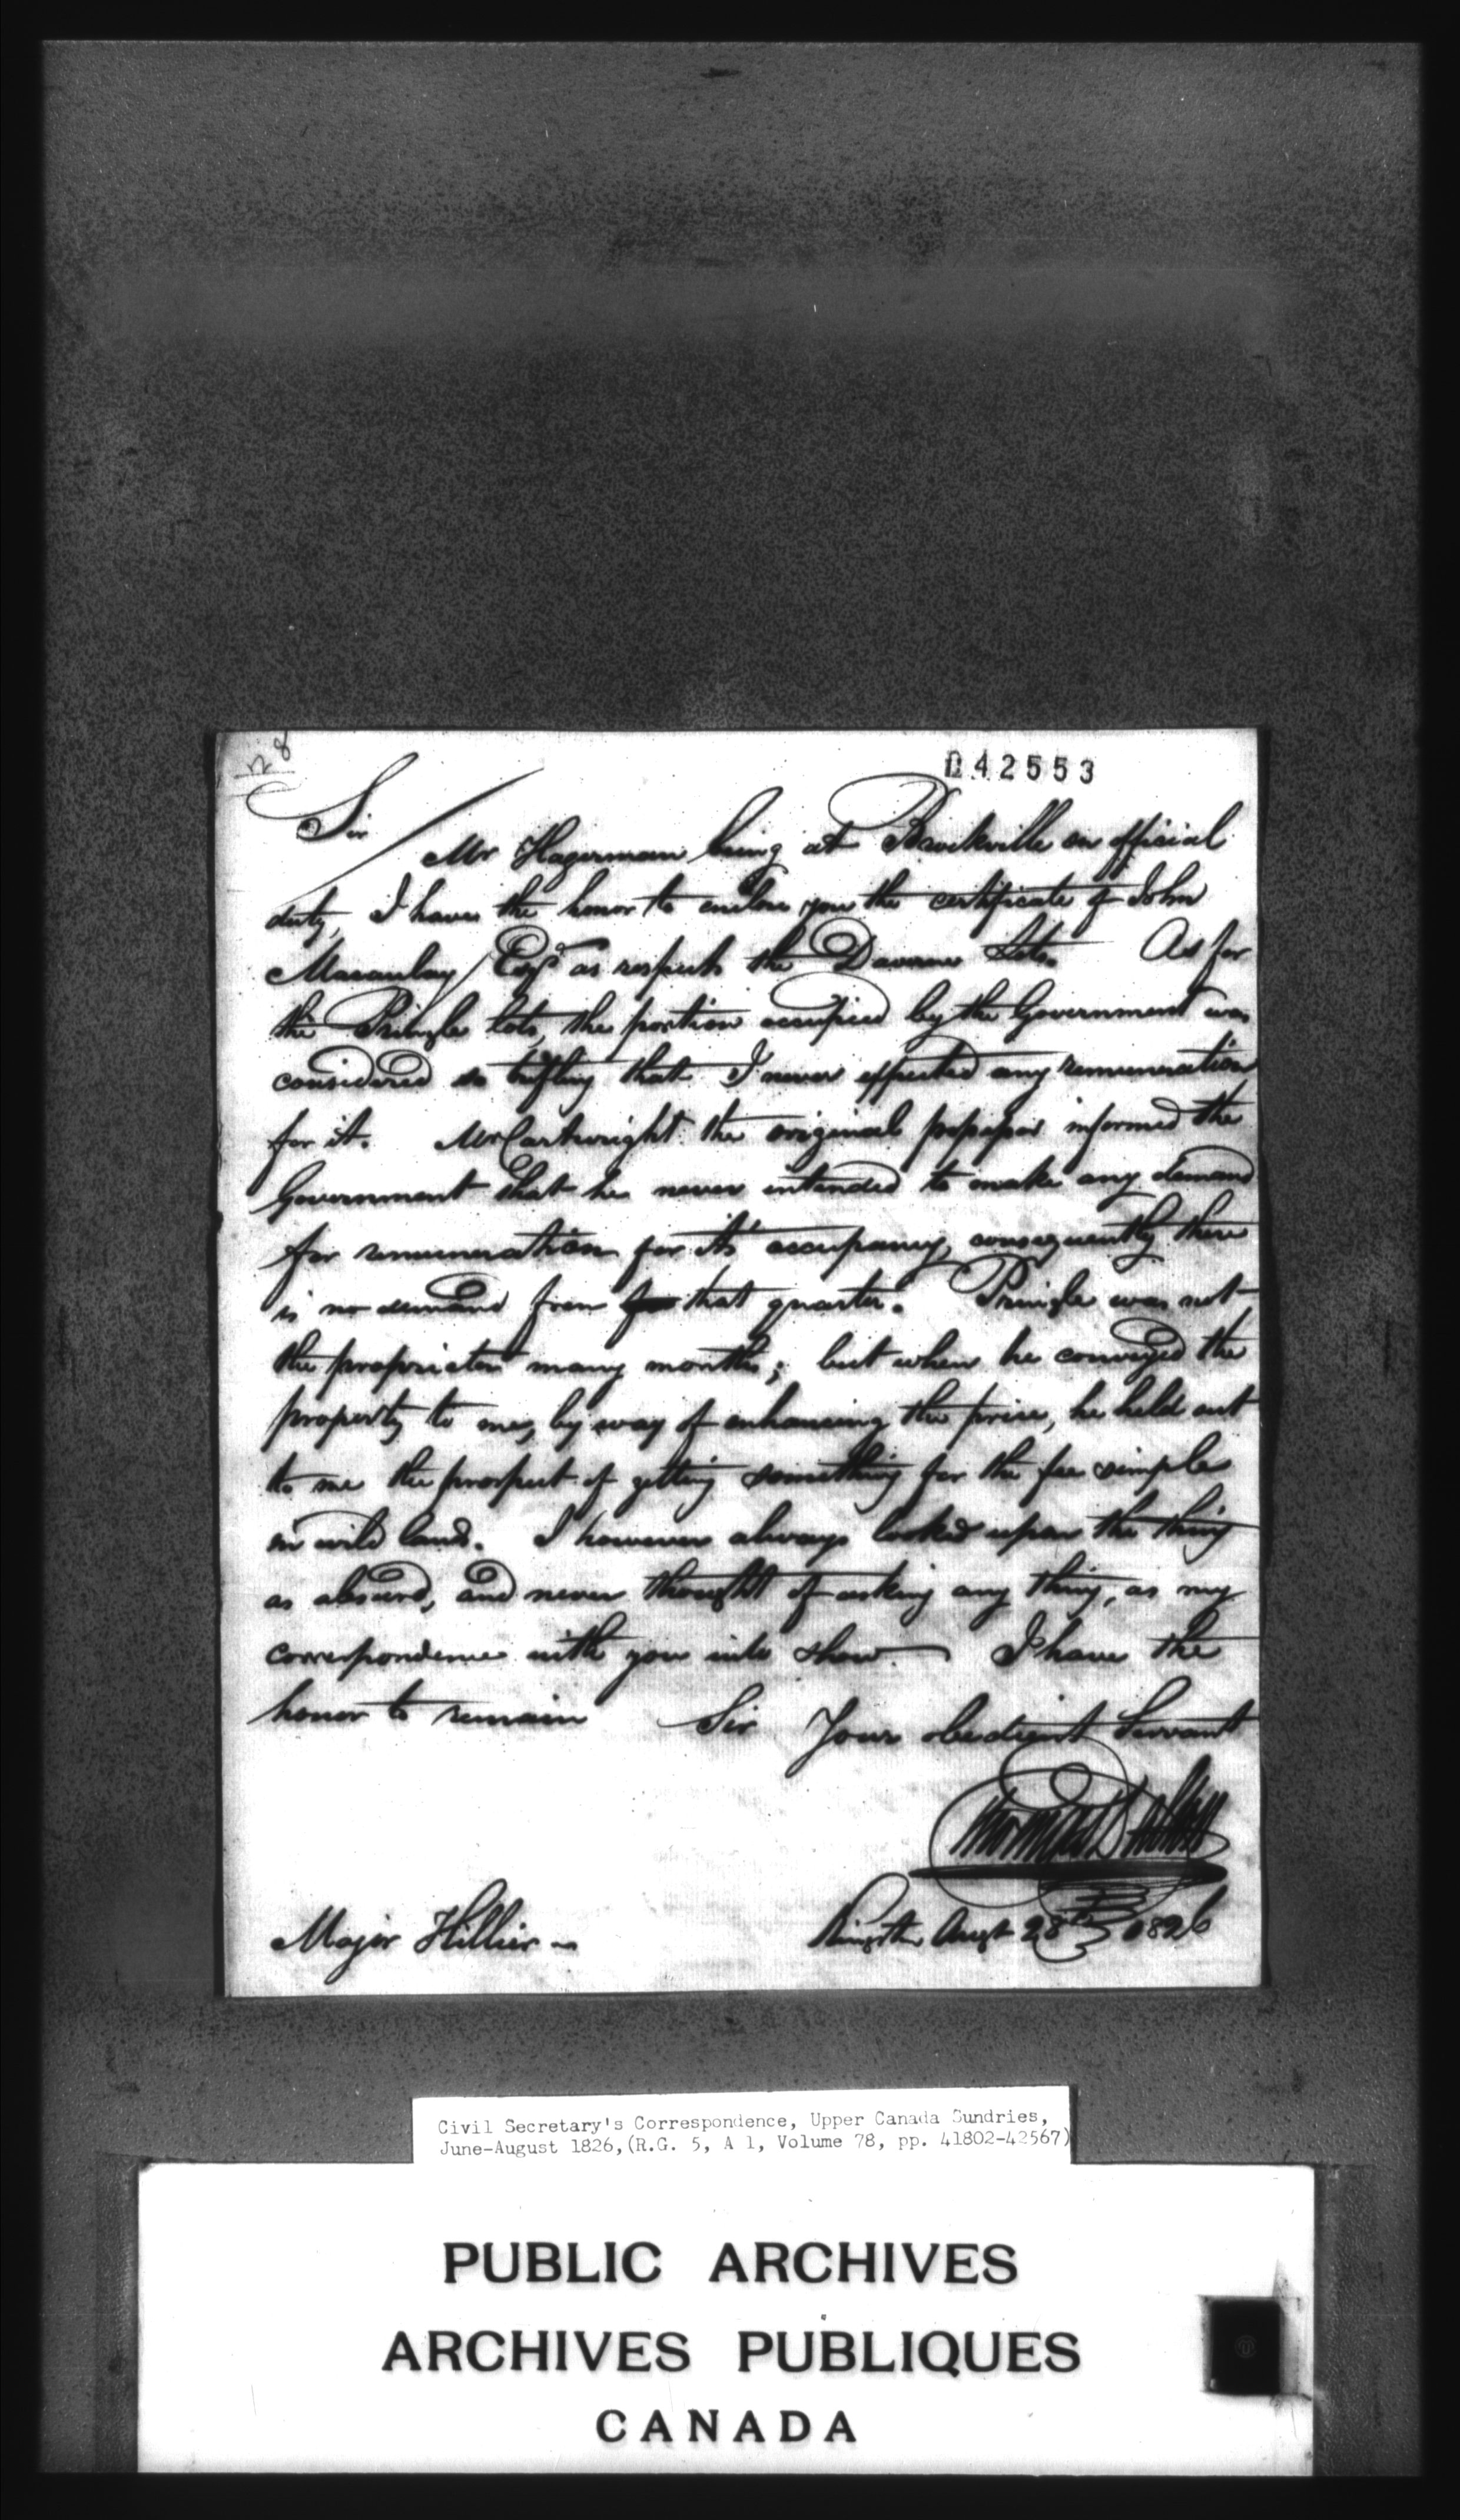 042553
Sir
Mr Hagerman being at Brockville on official
duty, I have the honor to enclose you the certificate of John
Macaulay Esqr as respects the Daverne Lots. As for
the Pringle lots, the portion occupied by the Government was
considered so trifling that I never expected any remuneration
for it. Mr Cartwright the original possessor informed the
Government that he never intended to make any demand
for remuneration for its' occupancy, consequently there
is no demand from that quarter. Pringle was not
the proprietor many months; but when he conveyed the
property to me, by way of enhancing the price, he held out
to me the prospect of getting something for the fee simple
in wild land. I however always looked upon the thing
as absurd, and never thought of asking any thing, as my
correspondence with you will show. I have the
honor to remain Sir Your obedient Servant
Thomas Dalton
Major Hillier Kingston Augt 28th 1826
Civil Secretary's Correspondence, Upper Canada Sundries,
June-August 1826, (R.G. 5, A 1, Volume 78, pp. 41802-42567)
PUBLIC ARCHIVES
ARCHIVES PUBLIQUES
CANADA